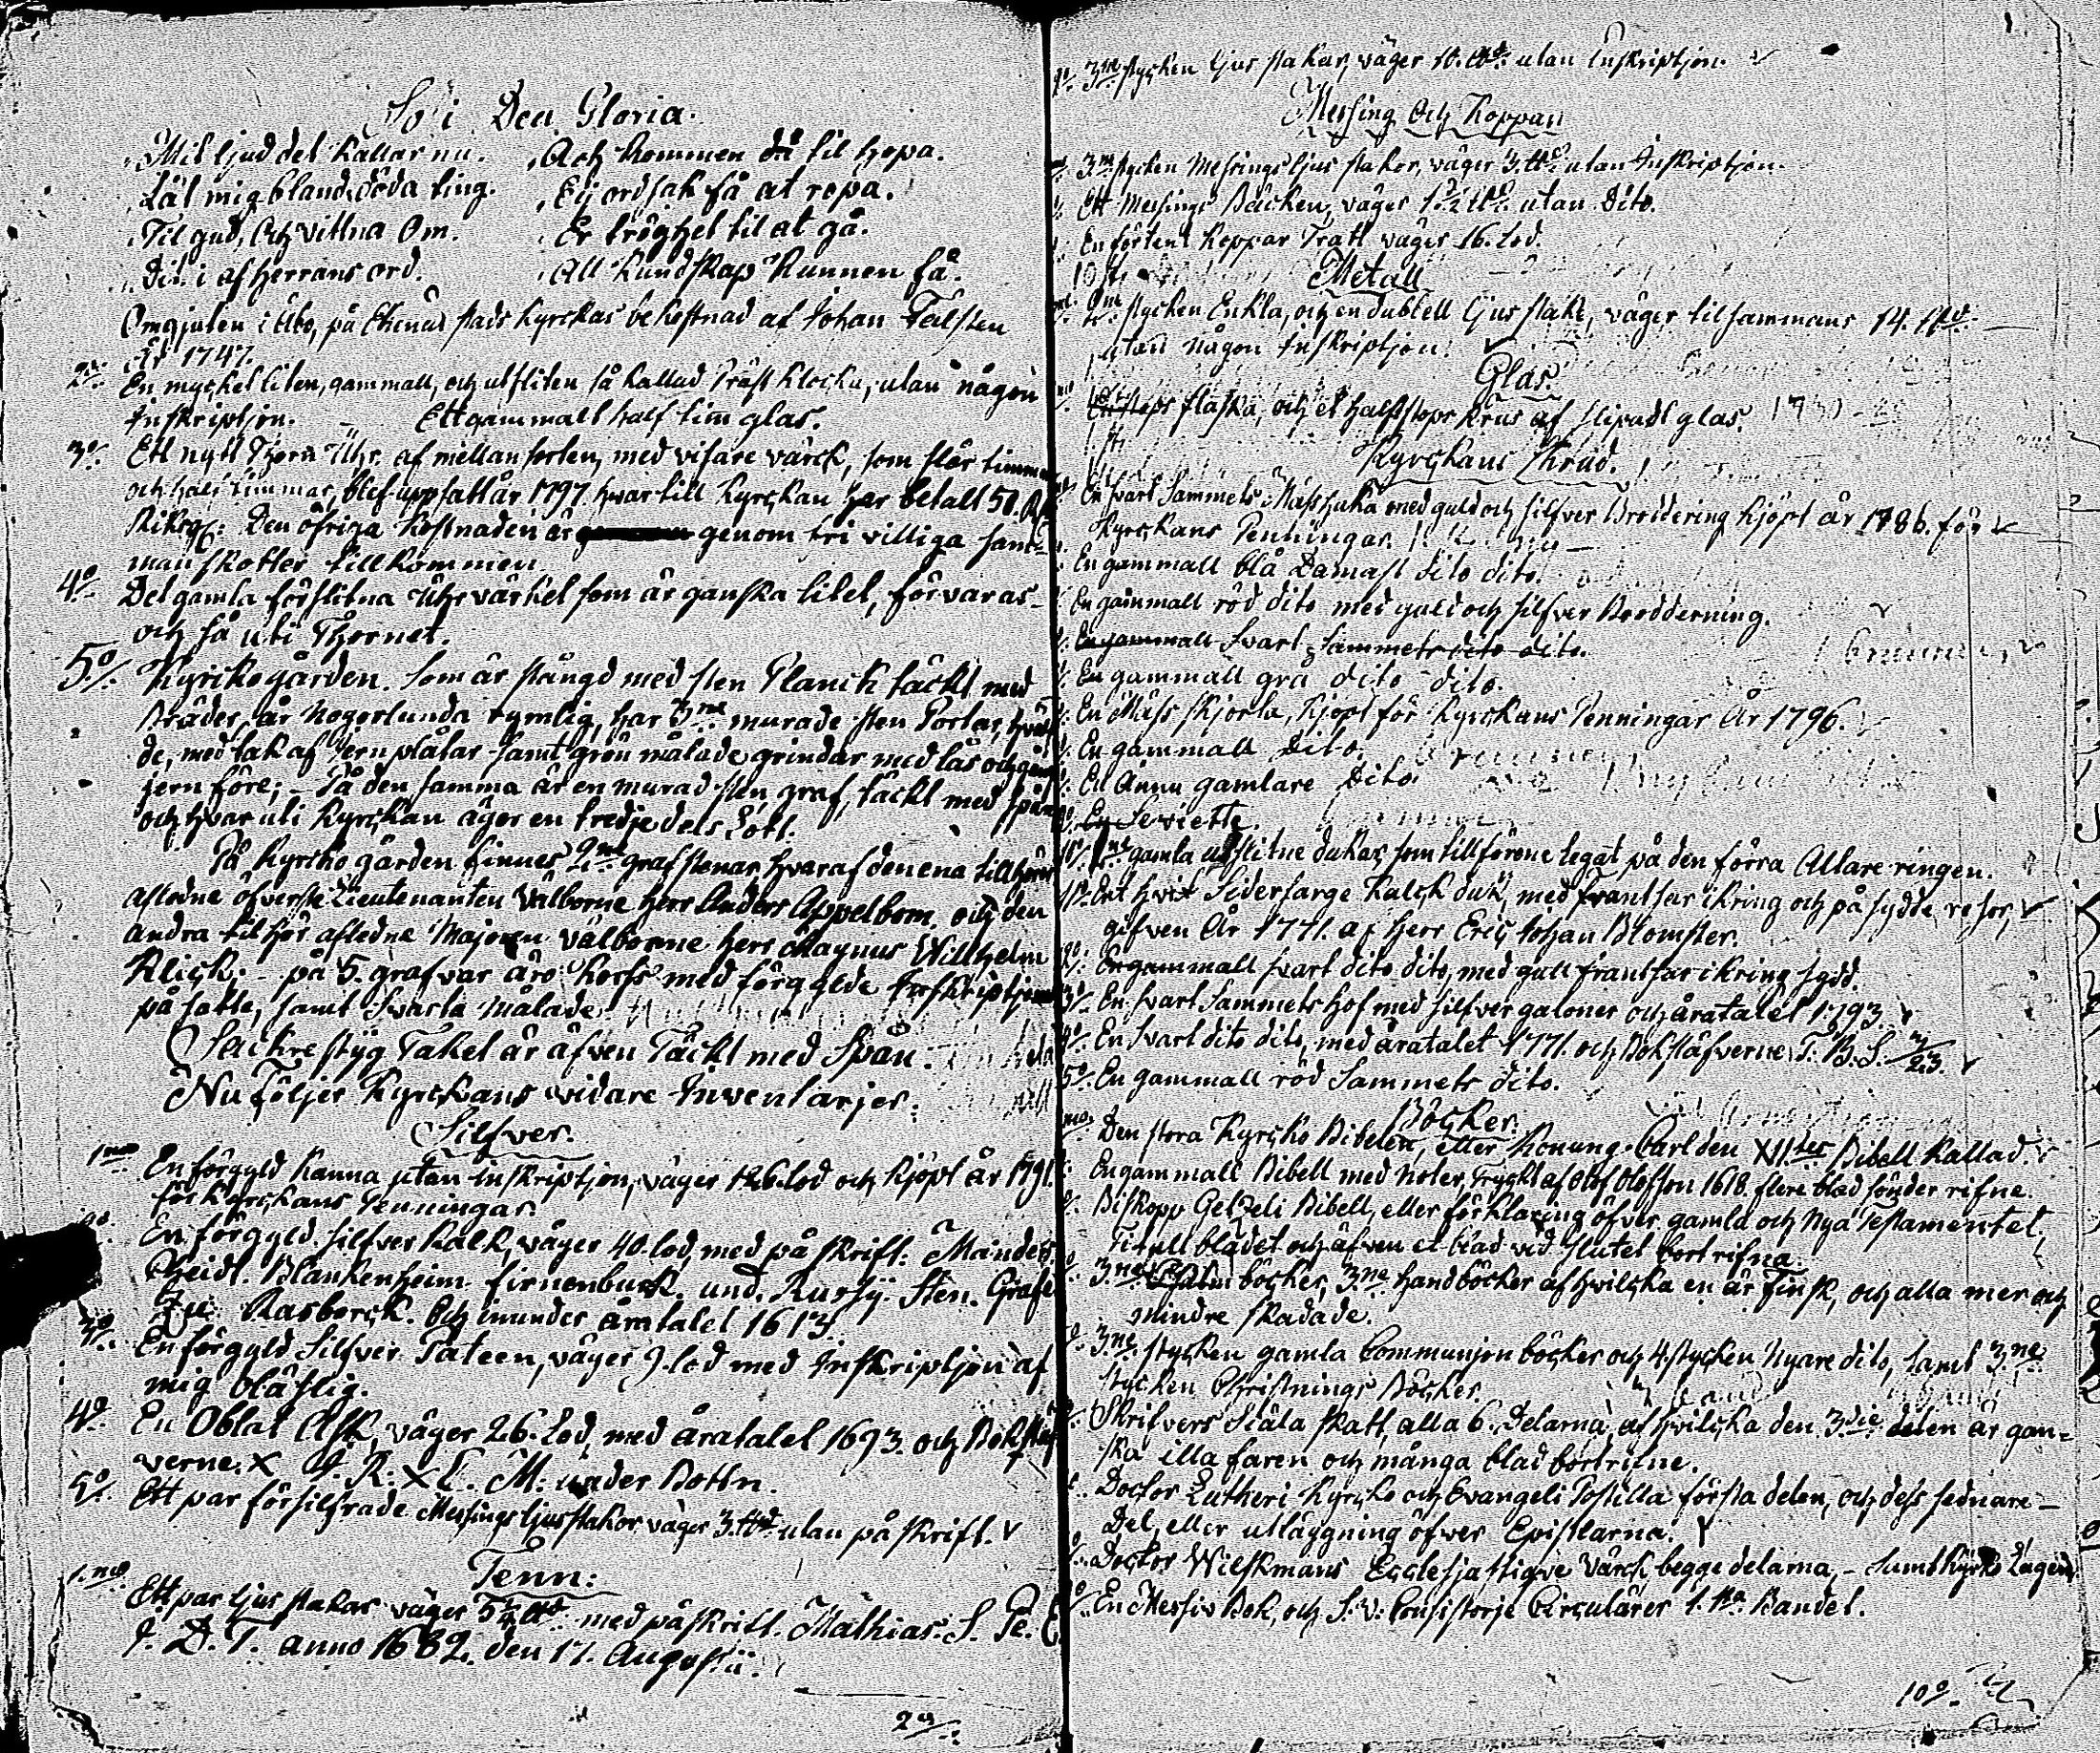 Soli Deo Gloria.
Mit ljud det kallar nu.
Låt mig bland döda ting.
Til gud, Och vittna Om.
Dit i af Herrans ord.
Och kommen då til hopa.
Ej ordsak få at ropa.
Er tröghet til at gå.
All kundskap kunnen få.
Omgjuten i Åbo, på Ekenäs stads Kyrckas bekostnad af Johan Falsten
År 1747.
2o En mycket liten, gammall, och utsliten så kallad Präst klocka, utan någon
Inskriptjon. Ett gammalt half tim glas.
3o Ett nytt Thorn Uhr. af mellan sorten, med visare värck, som slår timmar
och half timmar, blef uppsatt år 1797. hvar till Kyrckan har betalt 50. R
Riksg: Den öfriga kostnaden är genom fri villiga sam=
manskotter tillkommen.
4o Det gamla förslitna Uhrvärket som är ganska litet, förvaras
och så uti Thornet.
5o Kyrckogården. Som är stängd med sten Planck täckt med
Bräder, är nogorlunda rymlig, har 3ne murade sten Portar,
de, med tak af Jern plåtar samt grön målade grindar med lås och
jern före; - På den samma är en murad sten graf, täckt med spån
och hvar uti Kyrckan äger en tredje dels Lott.
På Kyrcko gården finnes 2ne grafstenar, hvaraf den ena tillhörer
afledne öfverste Lieutenanten Välborne herr Anders Appelbom, och den
andra tilhör afledne Majoren välborne herr Magnus Willhelm
Klick: på 5. grafvar äro kors med förgylde Inskriptjoner
på satte, samt Svarta målade.
Sackrestyg Taket är äfven Täckt med Spån.
Nu följer Kyrckans vidare Inventarjer.
Silfver.
1mo En förgyld Kanna utan inskriptjon, väger 126 lod och kjöpt år 1791.
för Kyrckans Penningar.
2o En förgyld silfver kalk, väger 40. lod, med på skrift: Mander
Cheidt. Blankenheim. firnenburk. und. Rusty. Sten. Grafe
Zu Rasborck. Och inunder åratalet 1613.
3o En förgyld Silfver Pateen, väger 9. lod med Inskriptjon af
mig blåslig.
4o En Oblat Ask, väger 26. Lod, med åratalet 1693. och Bokstäf
verne. X J. R: X E. M: under Bottn.
5o Ett par försilfrade Messings ljusstakor väger 3. ttd utan på skrift. V
Tenn:
1mo Ett par ljus stakar väger 5½ ttd med påskrift. Mathias. S. Pe. C.
J. D. T. anno 1682. den 17. Augustii.
2o
2o 3ne stycken ljus stakar, väger 10. ttd: utan Inskriptjon. V
Messing Och Koppar
3ne stycken Messings ljus stakor, väger 3. ttd utan Inskriptjon.
Ett Messings Bäcken, väger 1½ ttd. utan Dito.
En förtent Koppar Tratt väger 16. Lod.
Metall
2ne stycken Enkla, och en dubbell ljus stake, väger tilsammans 14. ttd
utan någon Inskriptjon.
Glas.
En stops flaska, och et halfstops krus af slipadt glas.
Kyrckans Skrud.
En svart Sammets Mässhaka med guld och silfver Broddering kjöpt år 1786. för V
Kyrckans Penningar.
En gammall blå Damast dito dito.
En gammall röd dito med guld och silfver Brodderning.
En gammall svart Sammets dito dito.
En gammall grå dito dito.
En Mäss skjorta, kjöpt för Kyrckans Penningar År 1796.
En gammall dito.
En Ännu gamlare dito.
En Serviette.
gamla utslitne dukar, som tillförene legat på den förra Altare ringen.
Ett hvit Siden farge kalck duk, med frantsar ikring och på sydde rosor, V
gifven År 1771. af Herr Eric Johan Blomster.
En gammall svart dito dito, med gull frantsar ikring sydd.
En svart Sammets hof med silfver galoner och åratalet 1793.
En Svart dito dito, med åratalet 1771. och Bokstäfverne T. B. S. 3/23.
En gammall röd Sammets dito.
Böcker.
Den stora Kyrcko Bibelen, eller Konung Carl den XII:tes Bibell kallad.
En gammall Bibell med noter, Tryckt af Olof Olofson 1618. flere blad sönder rifne.
Biskopp Gezeli Bibell, eller förklaring öfver gamla och nya Testamentet.
Titull bladet och äfven et blad vid slutet bortrifna.
3ne Psalm böcker, 3ne handböcker af hvilcka en är finsk, och alla mer och
mindre skadade.
3ne stycken gamla Communjon böcker och 4 stycken nyare dito, samt 3ne
stycken Christnings Böcker.
Skrifvers Siäla skatt, alla 6. Delarna, af hvilcka den 3die delen är gan=
ska illa faren och många blad bortrifne.
Doctor Lutheri Kyrcko och Evangeli Postilla första delen, och dess sednare
Del, eller utläggning öfver Epistlarna.
Doctor Wilskmans Ecclesjastique Värck begge delarna, - samt Kyrko Lagen.
En Messiv Bok, och S. V. Consistorje Circulärer 1. sta Bandet.
10o.